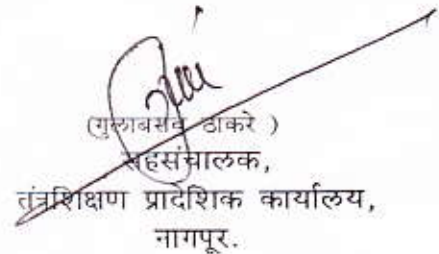 (गुलाबराव ठाकरे )
सहसंचालक,
तंत्रशिक्षण प्रादेशिक कार्यालय,
नागपूर.